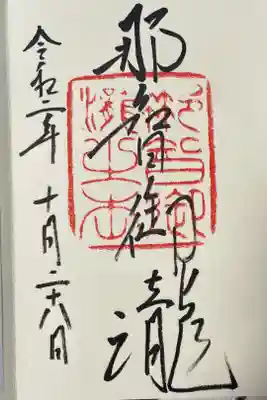 那智御瀧
令和二年 十月二十八日